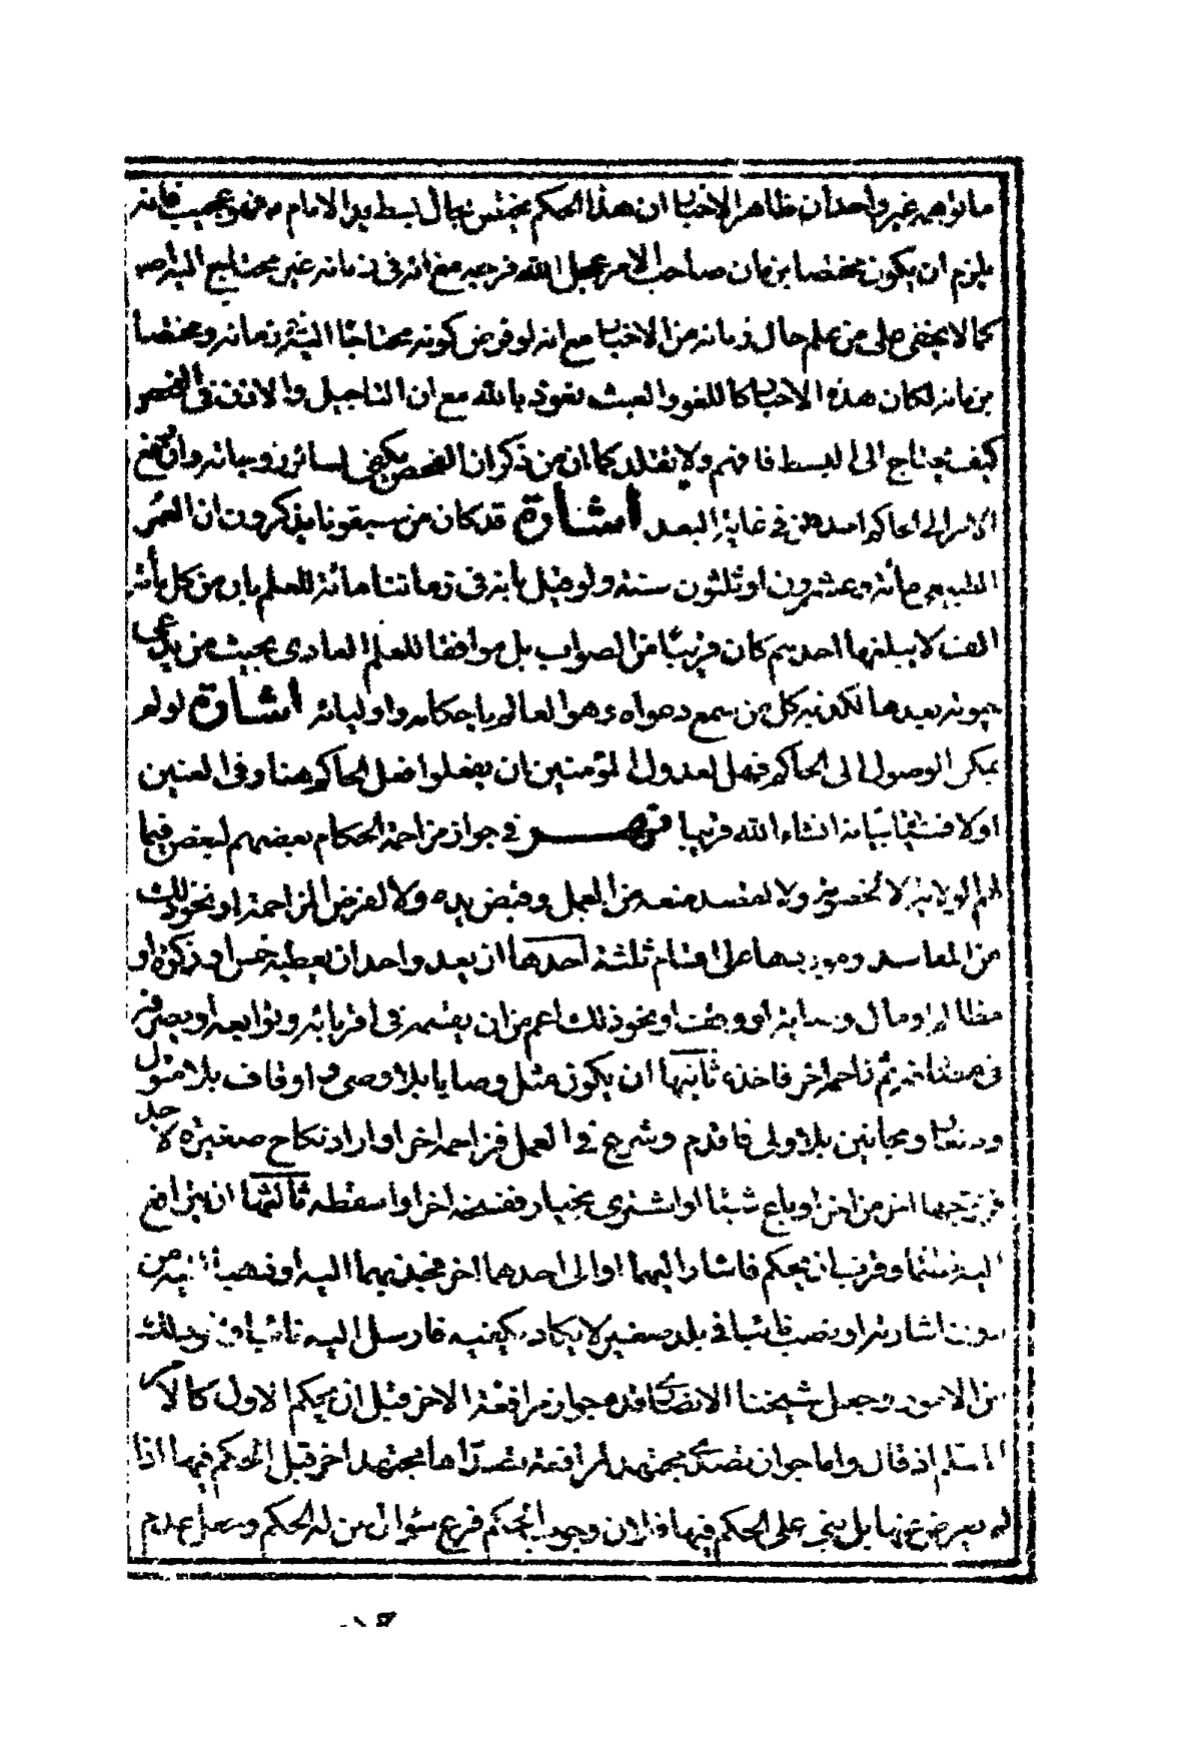 ما توهمه غير واحد ان ظاهر الاخبار ان هذا الحكم مختص بحال بسط يد الامام فهو عجيب فانه
يلزم ان يكون مختصا بزمان صاحب الامر عجل الله فرجه مع انه فى زمانه غير محتاج اليه
كما لا يخفى على من علم حال زمانه من الاخبار مع انه لو فرض كونه محتاجا اليه فى زمانه ومختصا
بزمانه لكان هذه الاخبار كاللغو والعبث نعوذ بالله مع ان التاجيل والاذن فى الفحص
كيف يحتاج الى البسط فافهم ولا تقلد كما ان من ذكر ان الفحص يكفى لسائر زوجاته وان لم
الامر الى الحاكم فى غاية البعد اشارة قد كان من سبقونا يذكرون ان العمر
الطبيعى مائة وعشرون او ثلثون سنة ولو قيل بانه فى زماننا مائة للعلم بان من كل مائة
الف لا يبلغها احدهم كان قريبا من الصواب بل موافقا للعلم العادى بحيث من يدعى
حيوته بعيدها لكذبه كل من سمع دعواه وهو العالم باحكامه واوليائه اشارة لو لم
يمكن الوصول الى الحاكم فهل لعدول المؤمنين ان يفعلوا فعل الحاكم هنا وفى العنين
اولا فسيأتى بيانه انشاء الله قريبا فى جواز مزاحمة الحكام بعضهم لبعض فيما
لهم الولاية لا لخصوص ولا لمفسد منعه من العمل وقبض يده ولا لغرض المزاحمة او نحو ذلك
من المفاسد وموردها على اقسام ثلثة احدها ان يعد واحد ان يعطيه خمس او زكوة او
مظالم او مال وصاية او وقف او نحو ذلك اعم من ان يقسمه فى اقربائه وتوابعه او يصرفه
فى ثم زاحمه اخر فاخذه ثانيها ان يكون مثل وصايا بلا وصى واوقاف بلا متول
ومجانين بلا ولى فاقدم وشرع فى العمل فزاحمه اخر او اراد نكاح صغيرة لا جد
فزوجها اخر من اخر او باع شيئا او اشترى بخيار ففسخه اخر او اسقطه ثالثها ان يترافع
اليه وقرب ان يحكم فاشار اليهما او الى احدهما اخر فجذبهما اليه او ذهبا اليه من
دون اشارته او نصب قاضيا فى بلد صغير لا يكاد يكفيه فارسل اليه قاضيا اخر ونحو ذلك
من الامور وجعل شيخنا الانصارى قده جواز مرافعة الاخر قبل ان يحكم الاول كالاصل
المسلم اذ قال واما جواز تصدى مجتهد لمرافعة تصداها مجتهد اخر قبل الحكم فيها اذا
لم يعرض عنها بل بنى على الحكم فيها فلان وجوب الحكم فرع سؤال من له الحكم عدم